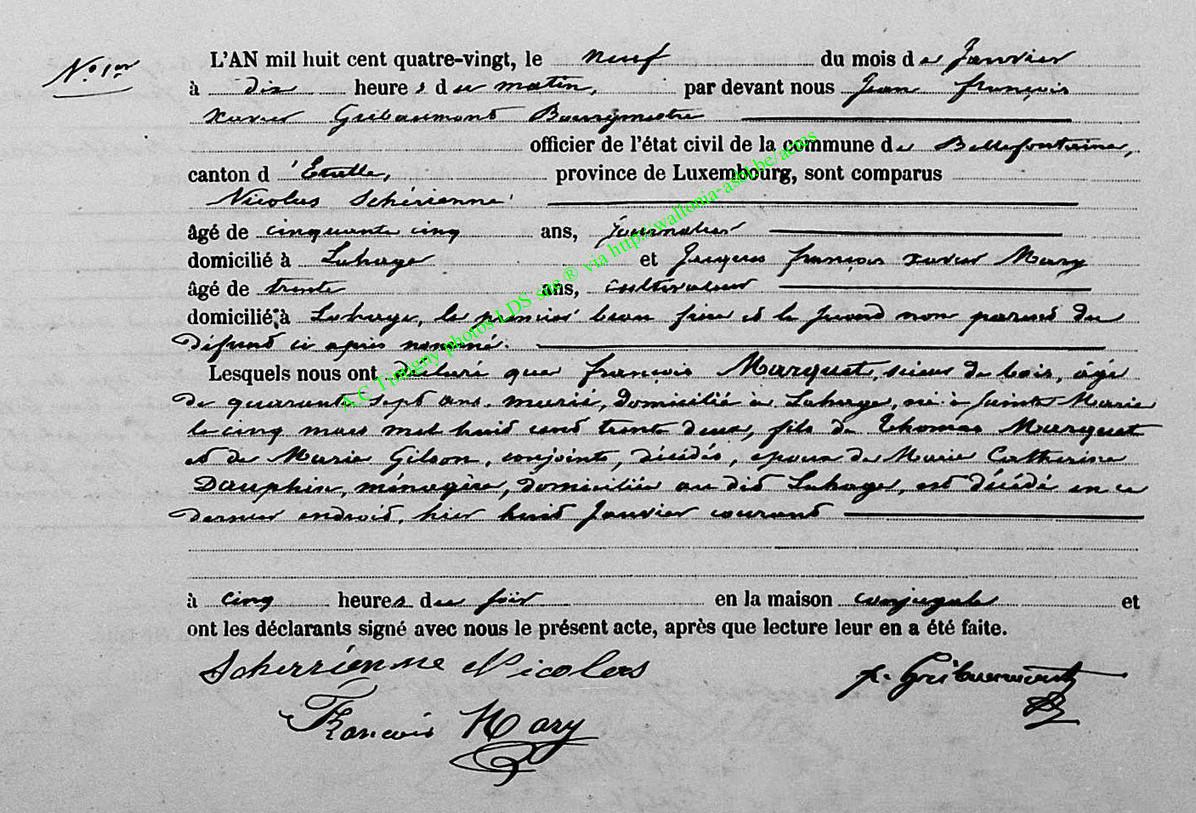 N.o 1er
L'AN mil huit cent quatre-vingt, le neuf du mois de Janvier
à dix heures du matin, par devant nous Jean françois
xavier Gribaumont Bourgmestre
officier de l'état civil de la commune de Bellefontaine,
canton d'Etalle, province de Luxembourg, sont comparus
Nicolas Schérienne
âgé de cinquante cinq ans, journalier
domicilié à Lahage et Jacques françois xavier Mary
âgé de trente ans, cultivateur
domicilié à Lahage, le premier beau frère et le second non parent du
défunt ci après nommé.
Lesquels nous ont déclaré que françois Marquet, scieur de bois, âgé
de quarante sept ans, marié, domicilié à Lahage, né à Sainte Marie
le cinq mars mil huit cent trente deux, fils de Thomas Marquet
et de Marie Gilson, conjoints, décédés, époux de Marie Catherine
Dauphin, ménagère, domiciliée au dit Lahage, est décédé en ce
dernier endroit, hier huit Janvier courant
à cinq heures du soir en la maison conjugale et
ont les déclarants signé avec nous le présent acte, après que lecture leur en a été faite.
Scherrienne Nicolas
x. Gribaumont
François Mary
A.C Tintigny photos LDS site ® via http://wallonia-asbl.be/actes